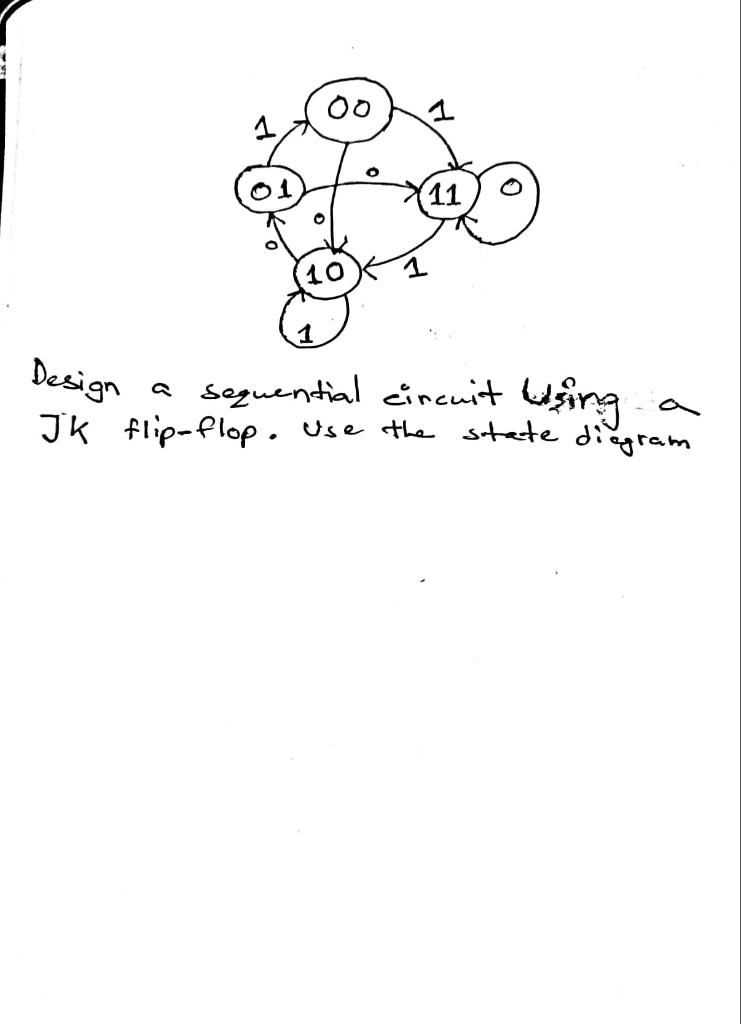 00
1
1
01
0
11
0
0
0
10
1
1
Design a sequential circuit Using a
JK flip-flop. Use the state diagram